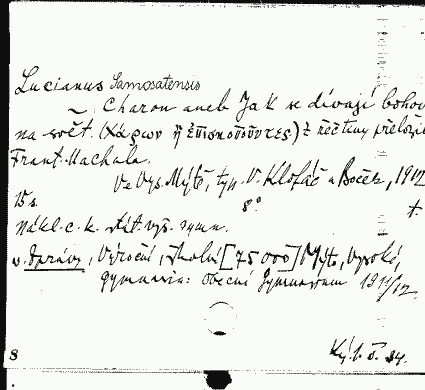 Lucianus Samosatensis
~ Charon aneb Jak se dívají bohov
na svět. (Χάρων ἢ ἐπισκοποῦντες) z řečtiny přeloži
Frant. Machala.
Ve Vys. Mýtě, typ. V. Klofáč a Boček, 1912
15 s. 8° +.
Nákl. c. k. stát. vyš. gymn.
v. Zprávy, Výroční, školní [75000] Mýto, Vysoké,
gymnasia: obecní Gymnasium 1911/12.
8